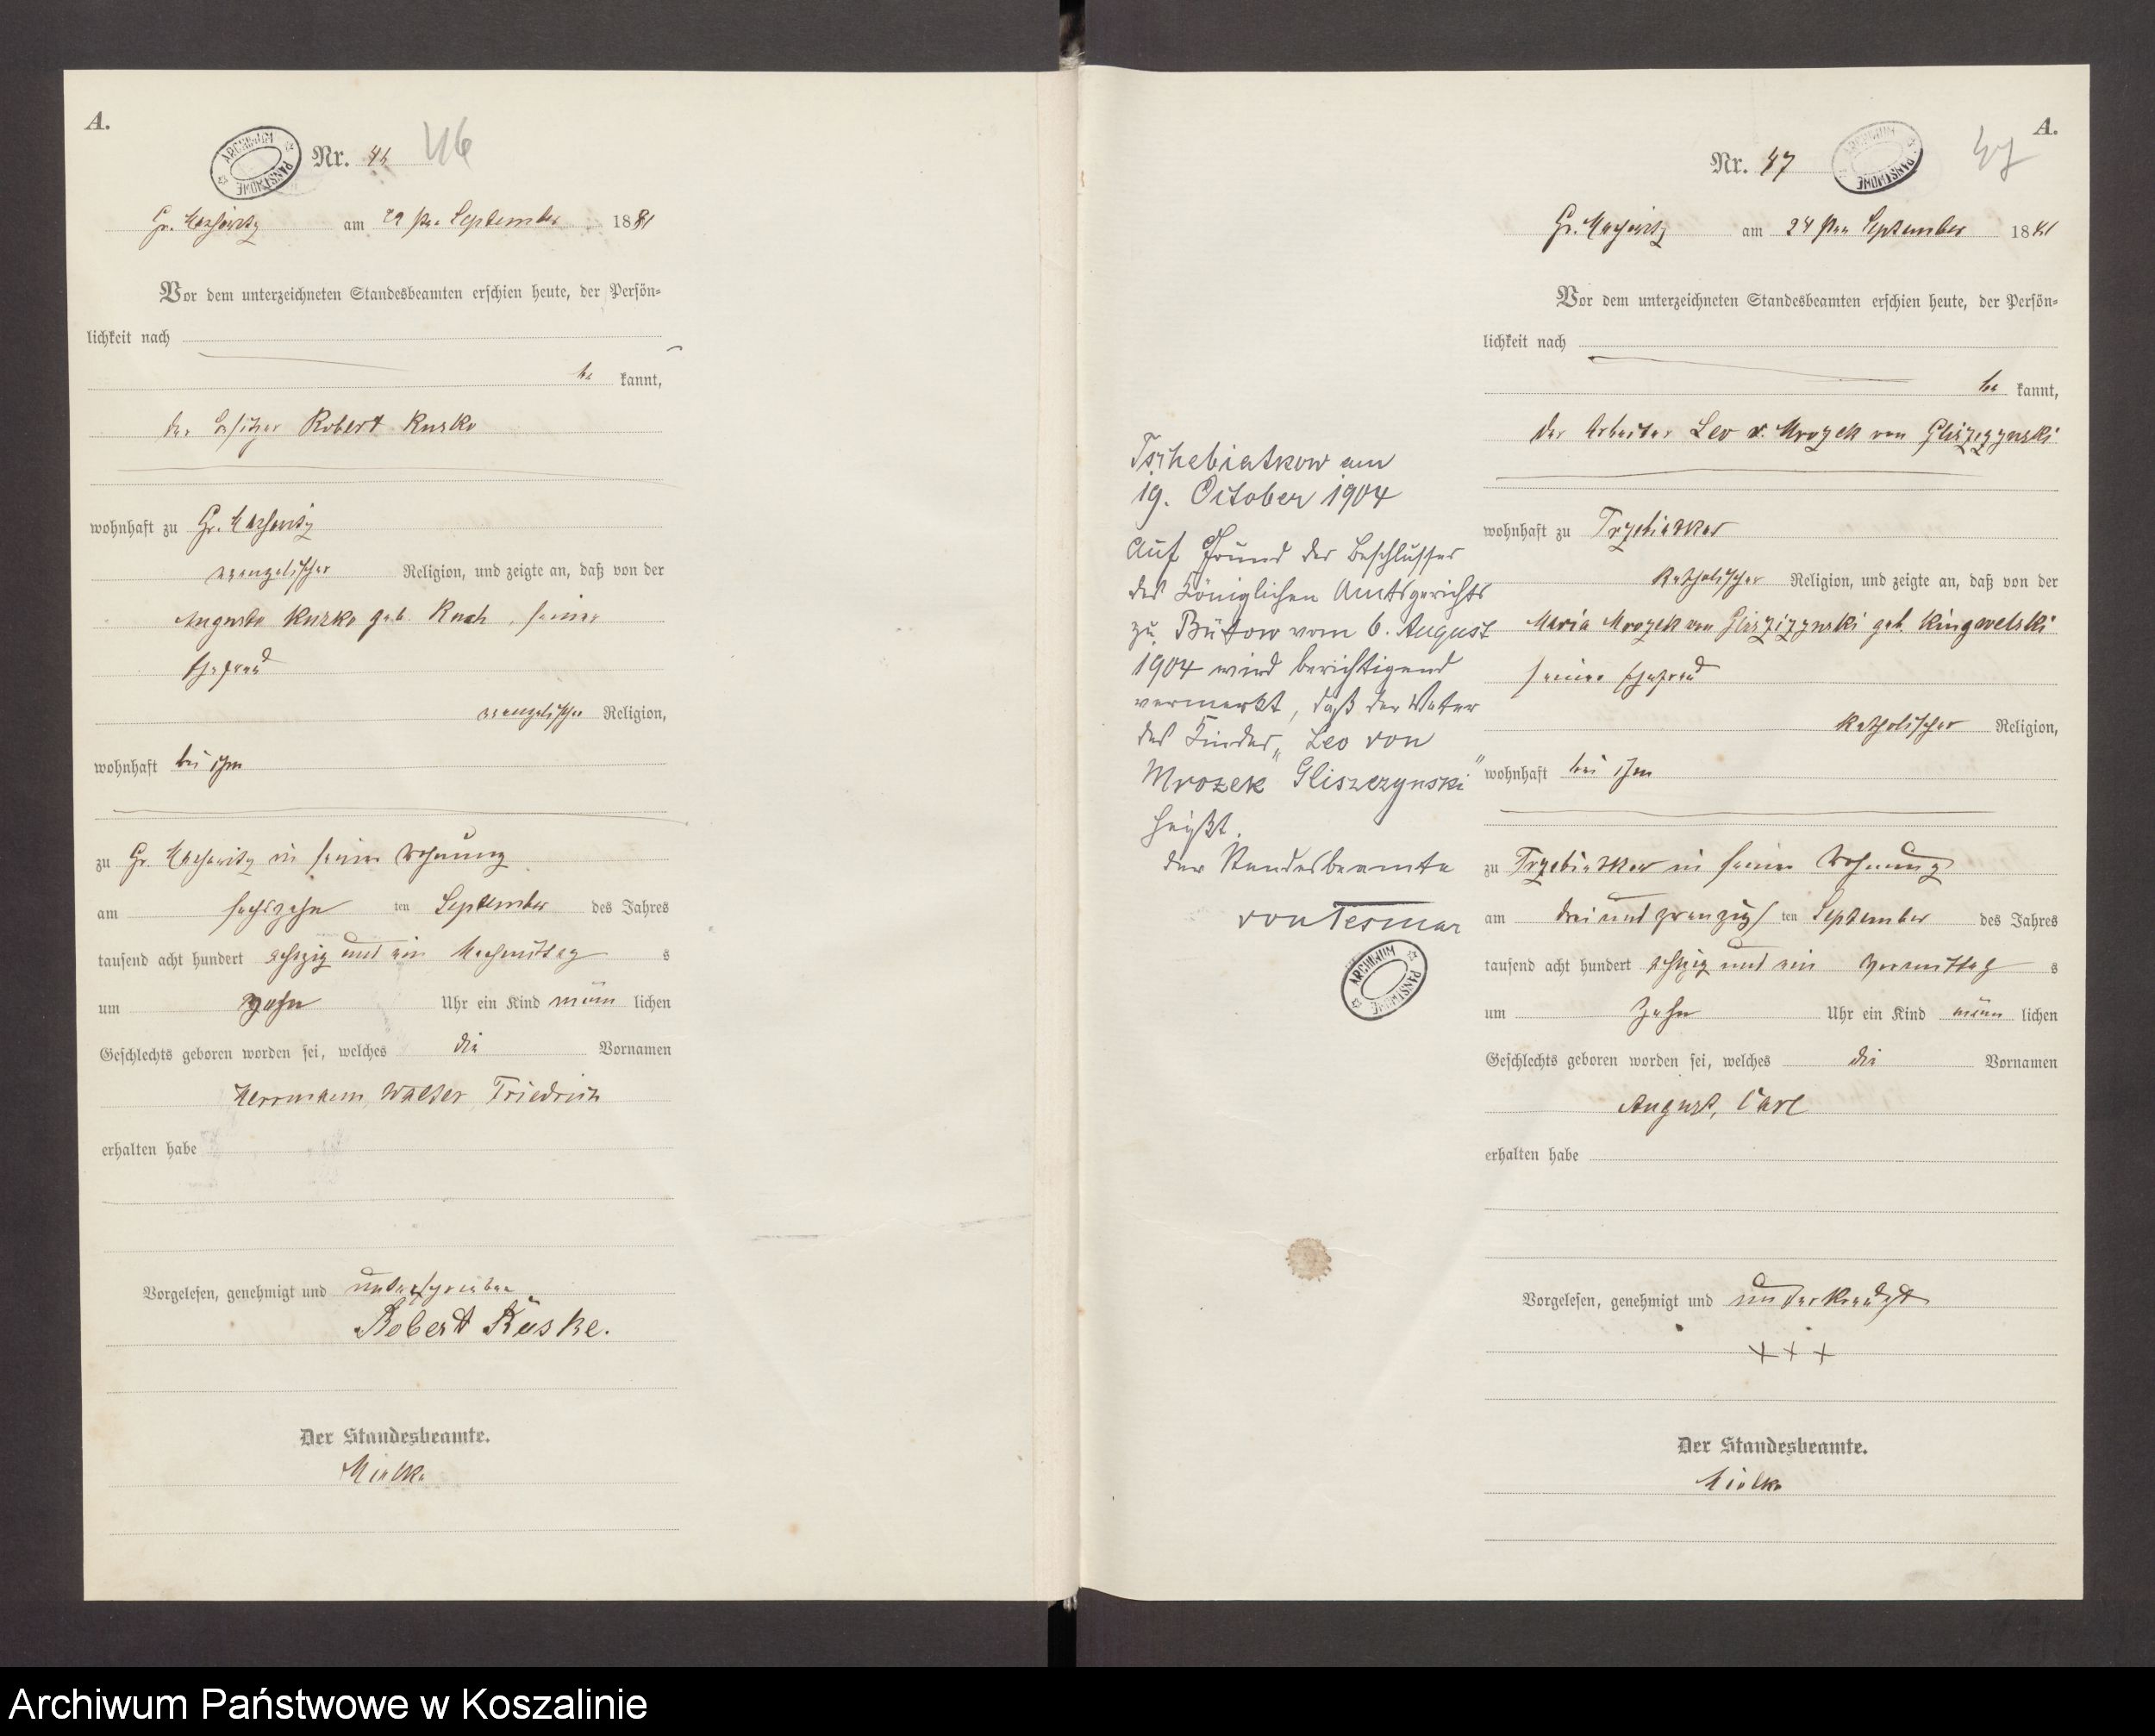 A.
ARCHIWUM PAŃSTWOWE
Nr. 46 46
am September 1881
Vor dem unterzeichneten Standesbeamten erschien heute, der Persön-
lichkeit nach
be kannt,
der Besitzer Robert Kuske
wohnhaft zu Gr.
evangelischer Religion, und zeigte an, daß von der
Auguste Kuske geb. seiner
Ehefrau
evangelischer Religion,
wohnhaft bei ihm
zu Gr. in seiner Wohnung
am sechszehn ten September des Jahres
tausend acht hundert achtzig und ein Nachmittag s
um zehn Uhr ein Kind männ lichen
Geschlechts geboren worden sei, welches die Vornamen
Herrmann Walter Friedrich
erhalten habe
Vorgelesen, genehmigt und unterschrieben
Robert Kuske.
Der Standesbeamte.
Mielke
A.
Nr. 47 47
ARCHIWUM PAŃSTWOWE
am 24 ten September 1881
Vor dem unterzeichneten Standesbeamten erschien heute, der Persön-
lichkeit nach
be kannt,
der Arbeiter Leo v. Mrozek von
wohnhaft zu Trzebiatkow
katholischer Religion, und zeigte an, daß von der
Maria Mrozek von geb.
seiner Ehefrau
katholischer Religion,
wohnhaft bei ihm
zu Trzebiatkow in seiner Wohnung
am drei und zwanzigs ten September des Jahres
tausend acht hundert achtzig und ein Vormittag s
um zehn Uhr ein Kind männ lichen
Geschlechts geboren worden sei, welches die Vornamen
August, Carl
erhalten habe
Vorgelesen, genehmigt und unterkreuzt
+ + +
Der Standesbeamte.
Mielke
Tschebiatkow am
19. October 1904
Auf Grund des Beschlusses
des Königlichen Amtsgerichts
zu Bütow vom 6. August
1904 wird berichtigend
vermerkt, daß der Vater
des Kindes „Leo von
Mrozek Gliszczynski"
heißt.
Der Standesbeamte
von Tesmar
ARCHIWUM PAŃSTWOWE
Archiwum Państwowe w Koszalinie